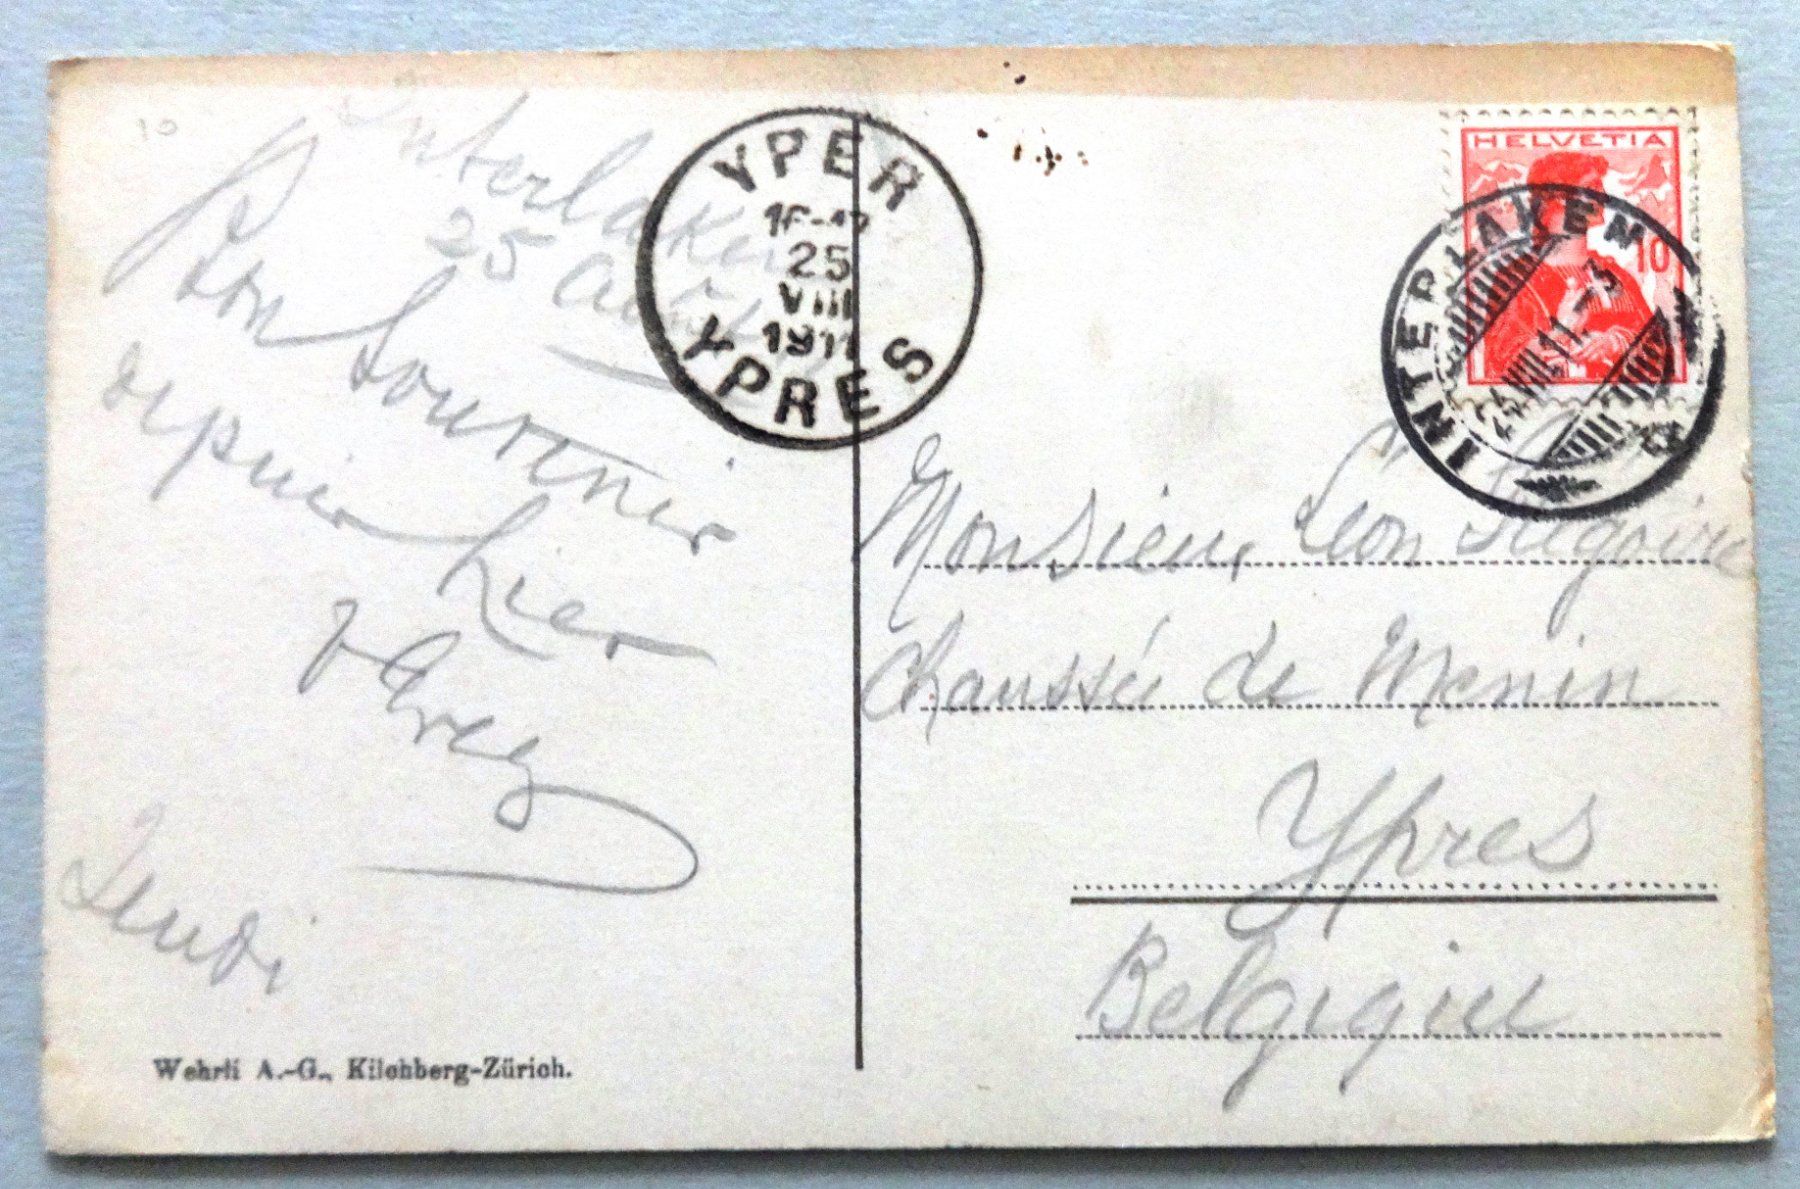 10
Interlaken
25 Août
Bon Souvenir
depuis hier
Jeudi
Wehrli A.-G., Kilchberg-Zürich.
YPER
25
VIII
1911
YPRES
HELVETIA
10
INTERLAKEN
VIII.11.-3
Monsieur Léon
Chaussée de Menin
Ypres
Belgique